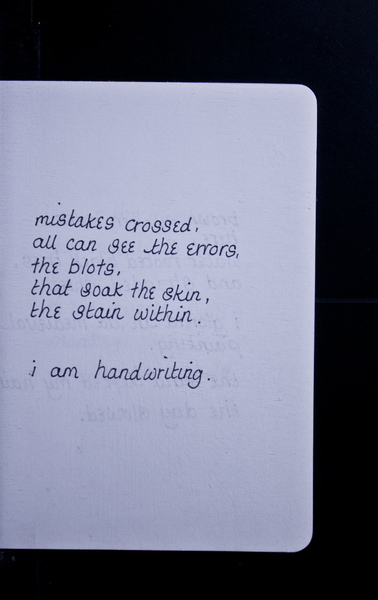 mistakes crossed,
all can see the errors,
the blots,
that soak the skin,
the stain within.
i am handwriting.